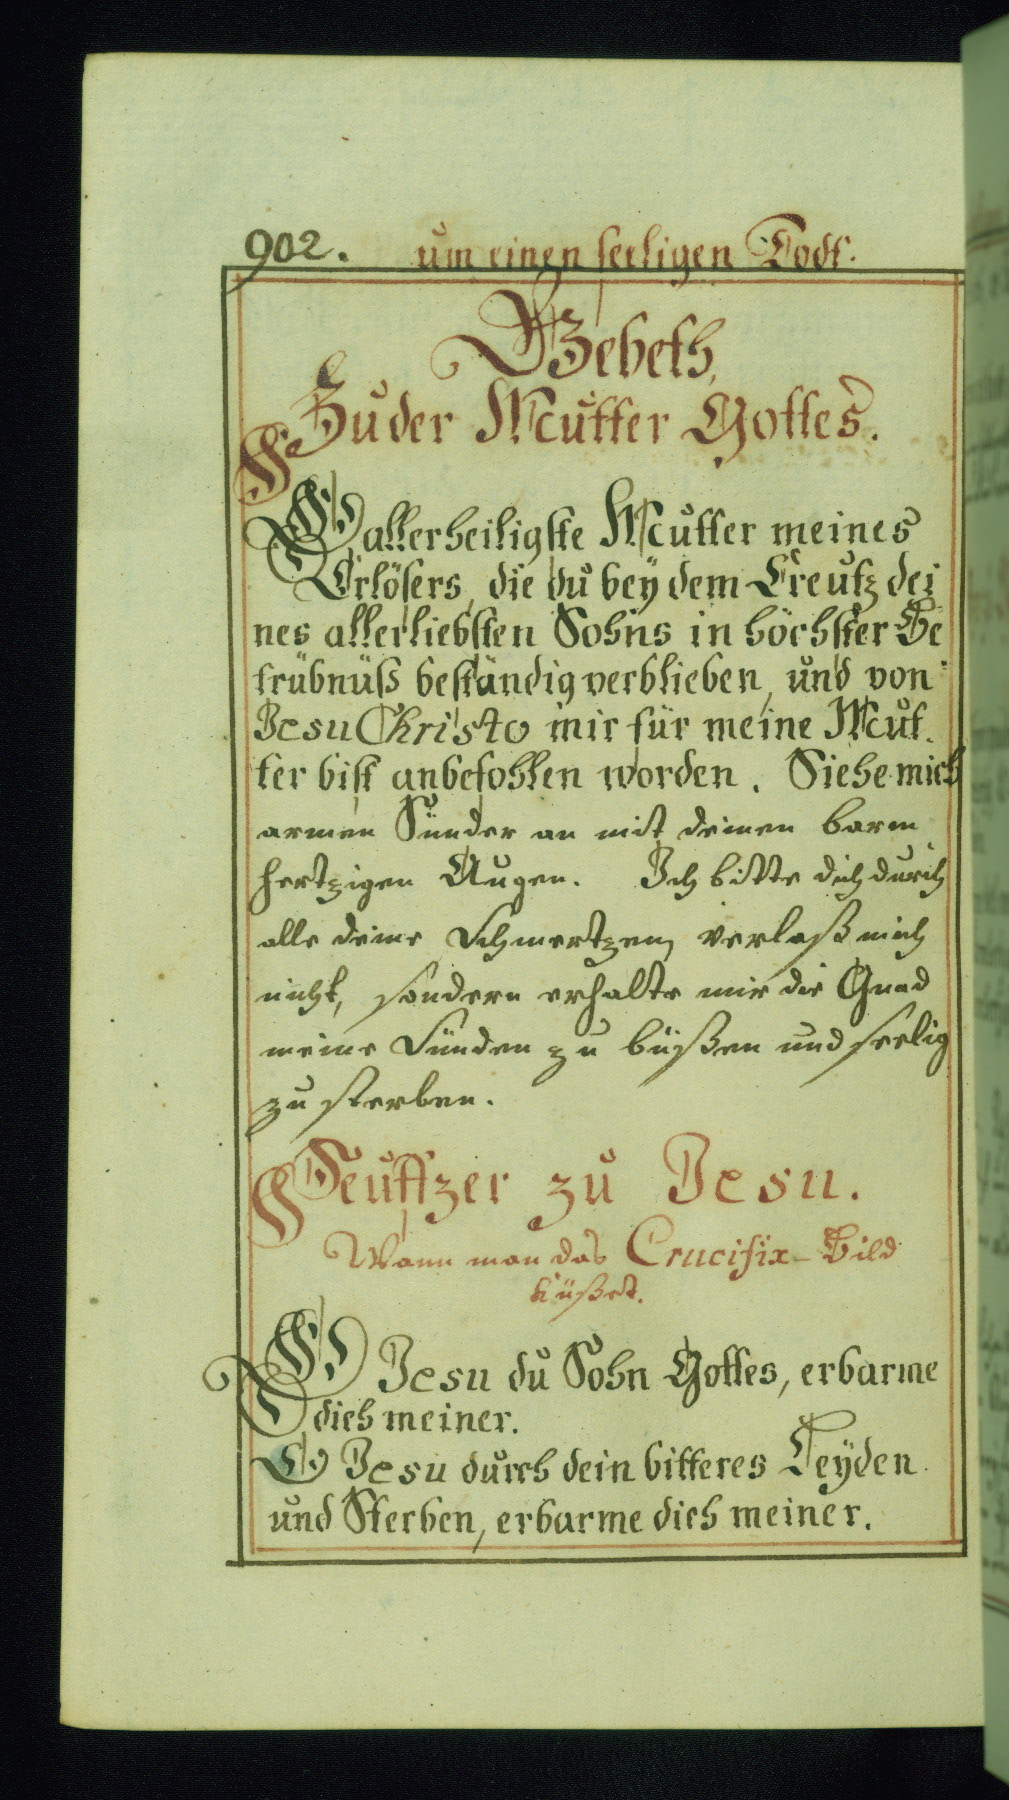 902. um einen seeligen Todt.
Gebeth,
Zu der Mutter Gottes.
O allerheiligste Mutter meines
Erlösers, die du bey dem Creutz dei
nes allerliebsten Sohns in höchster Be
trübnüß beständig verblieben, und von
Jesu Christo mir für meine Mut
ter bist anbefohlen worden. Siehe mich
armen Sünder an mit deinen barm
hertzigen Augen. Ich bitte dich durch
alle deine Schmertzen, verlaß mich
nicht, sondern erhalte mir die Gnad
meine Sünden zu büßen und seelig
zu sterben.
Seuffzer zu Jesu.
Wann man das Crucifix-Bild
küßet.
O Jesu du Sohn Gottes, erbarme
dich meiner.
O Jesu durch dein bitteres Leyden
und Sterben, erbarme dich meiner.